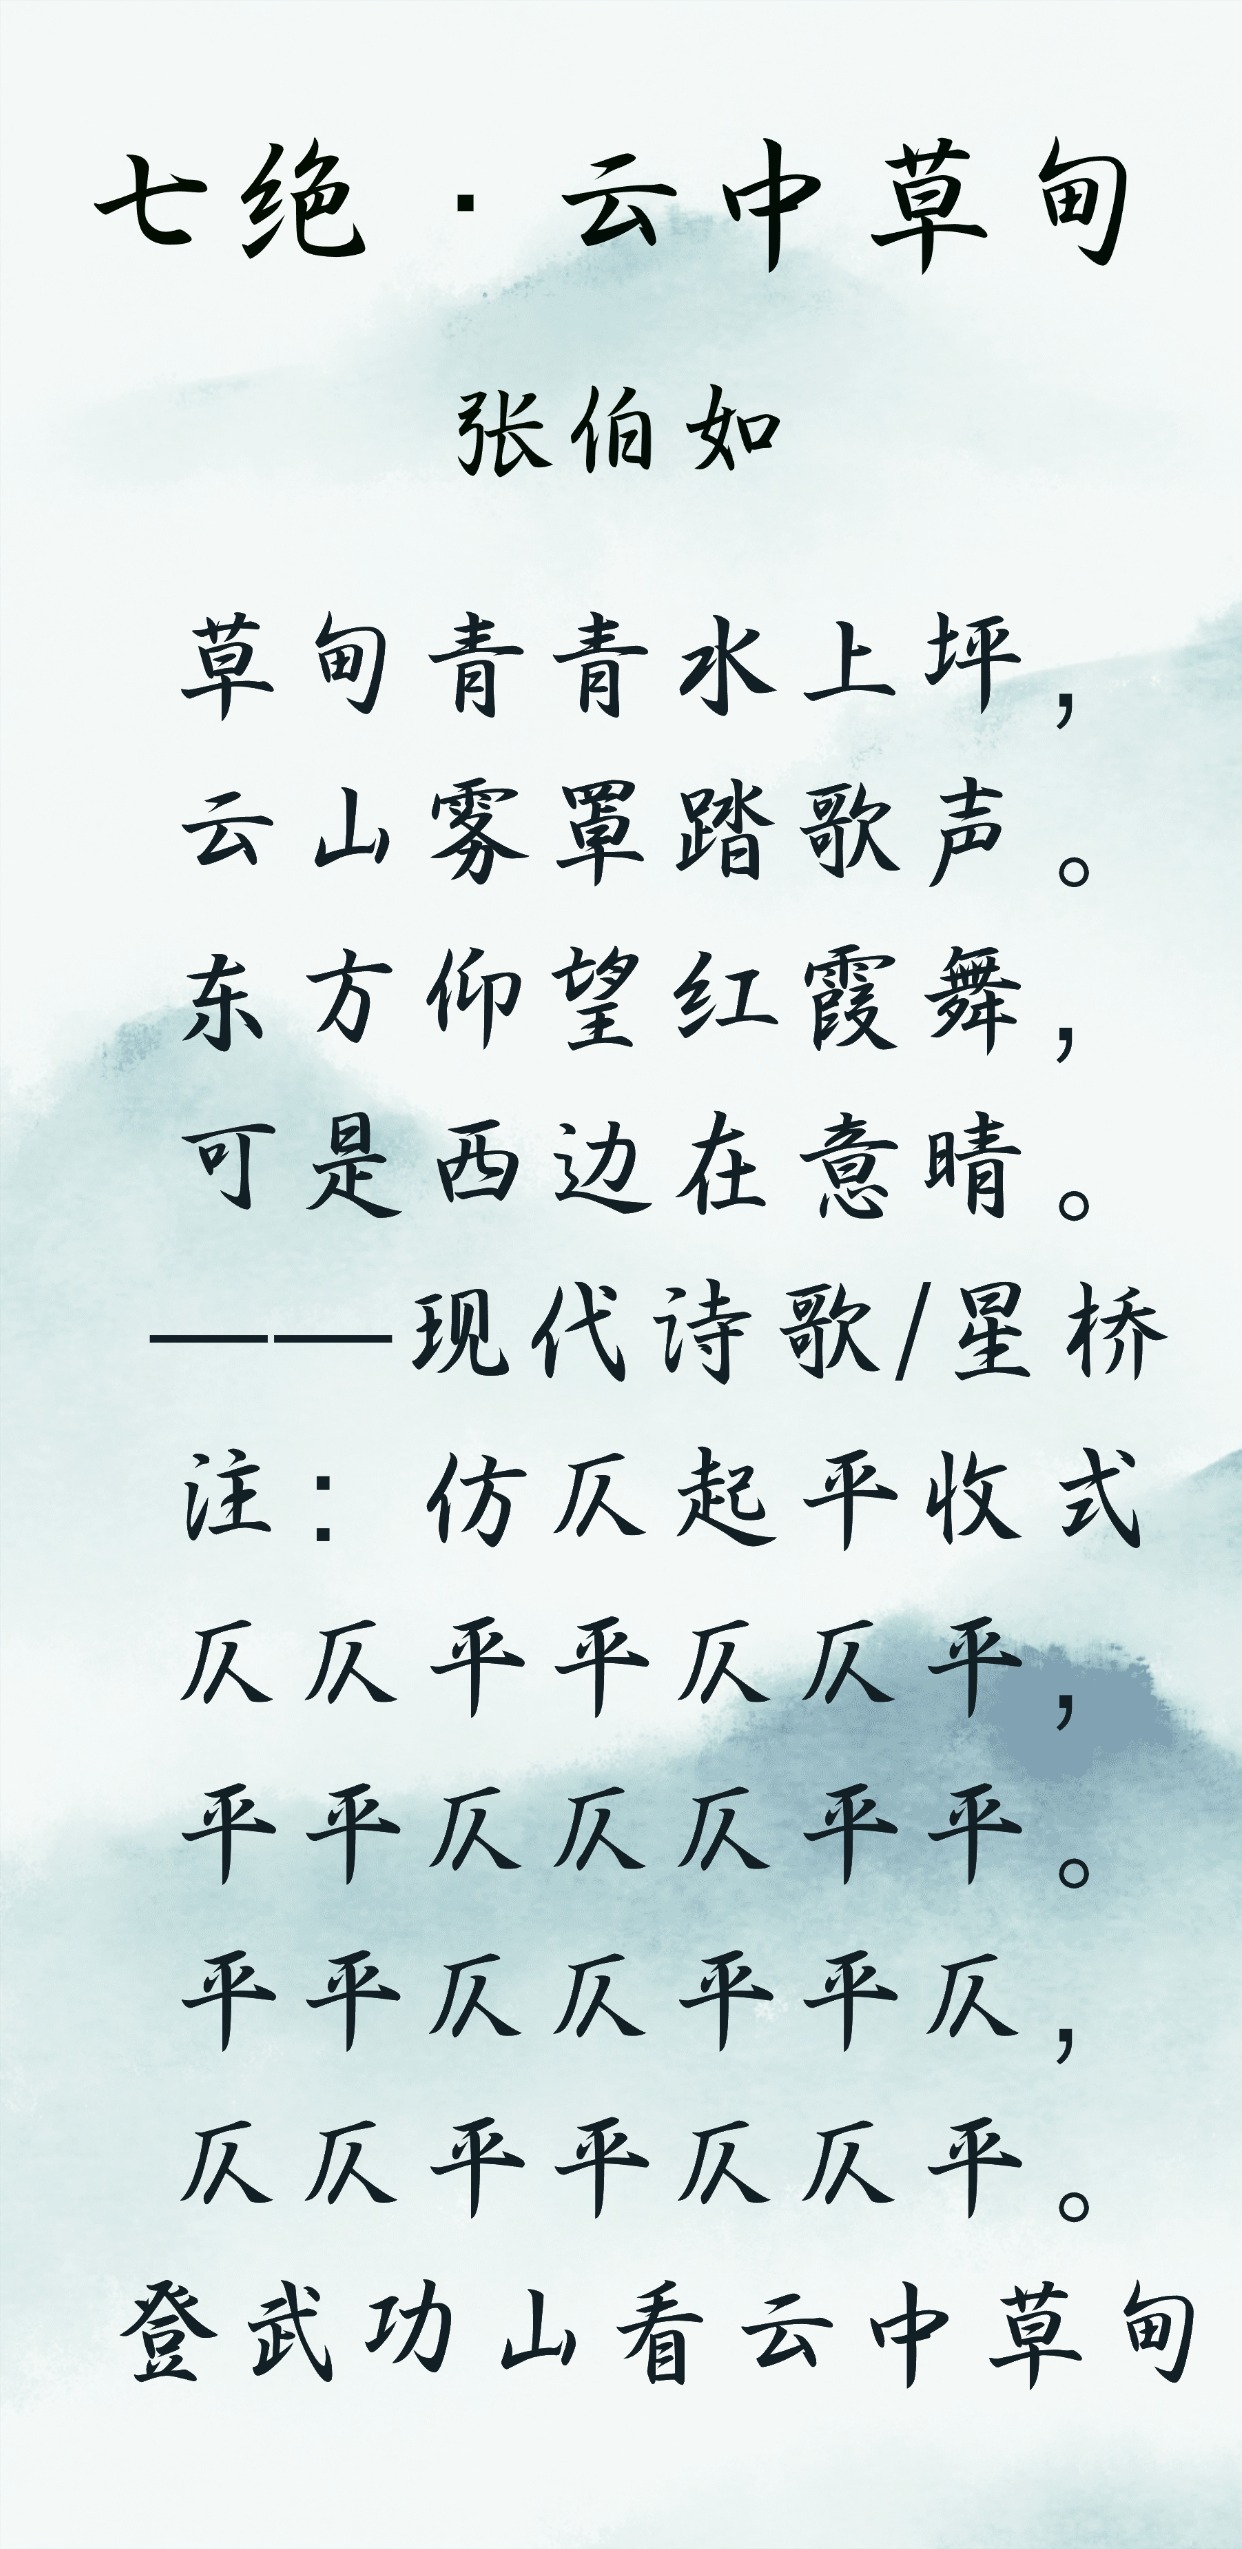 七绝·云中草甸
张伯如
草甸青青水上坪，
云山雾罩踏歌声。
东方仰望红霞舞，
可是西边在意晴。
——现代诗歌/星桥
注：仿仄起平收式
仄仄平平仄仄平，
平平仄仄仄平平。
平平仄仄平平仄，
仄仄平平仄仄平。
登武功山看云中草甸